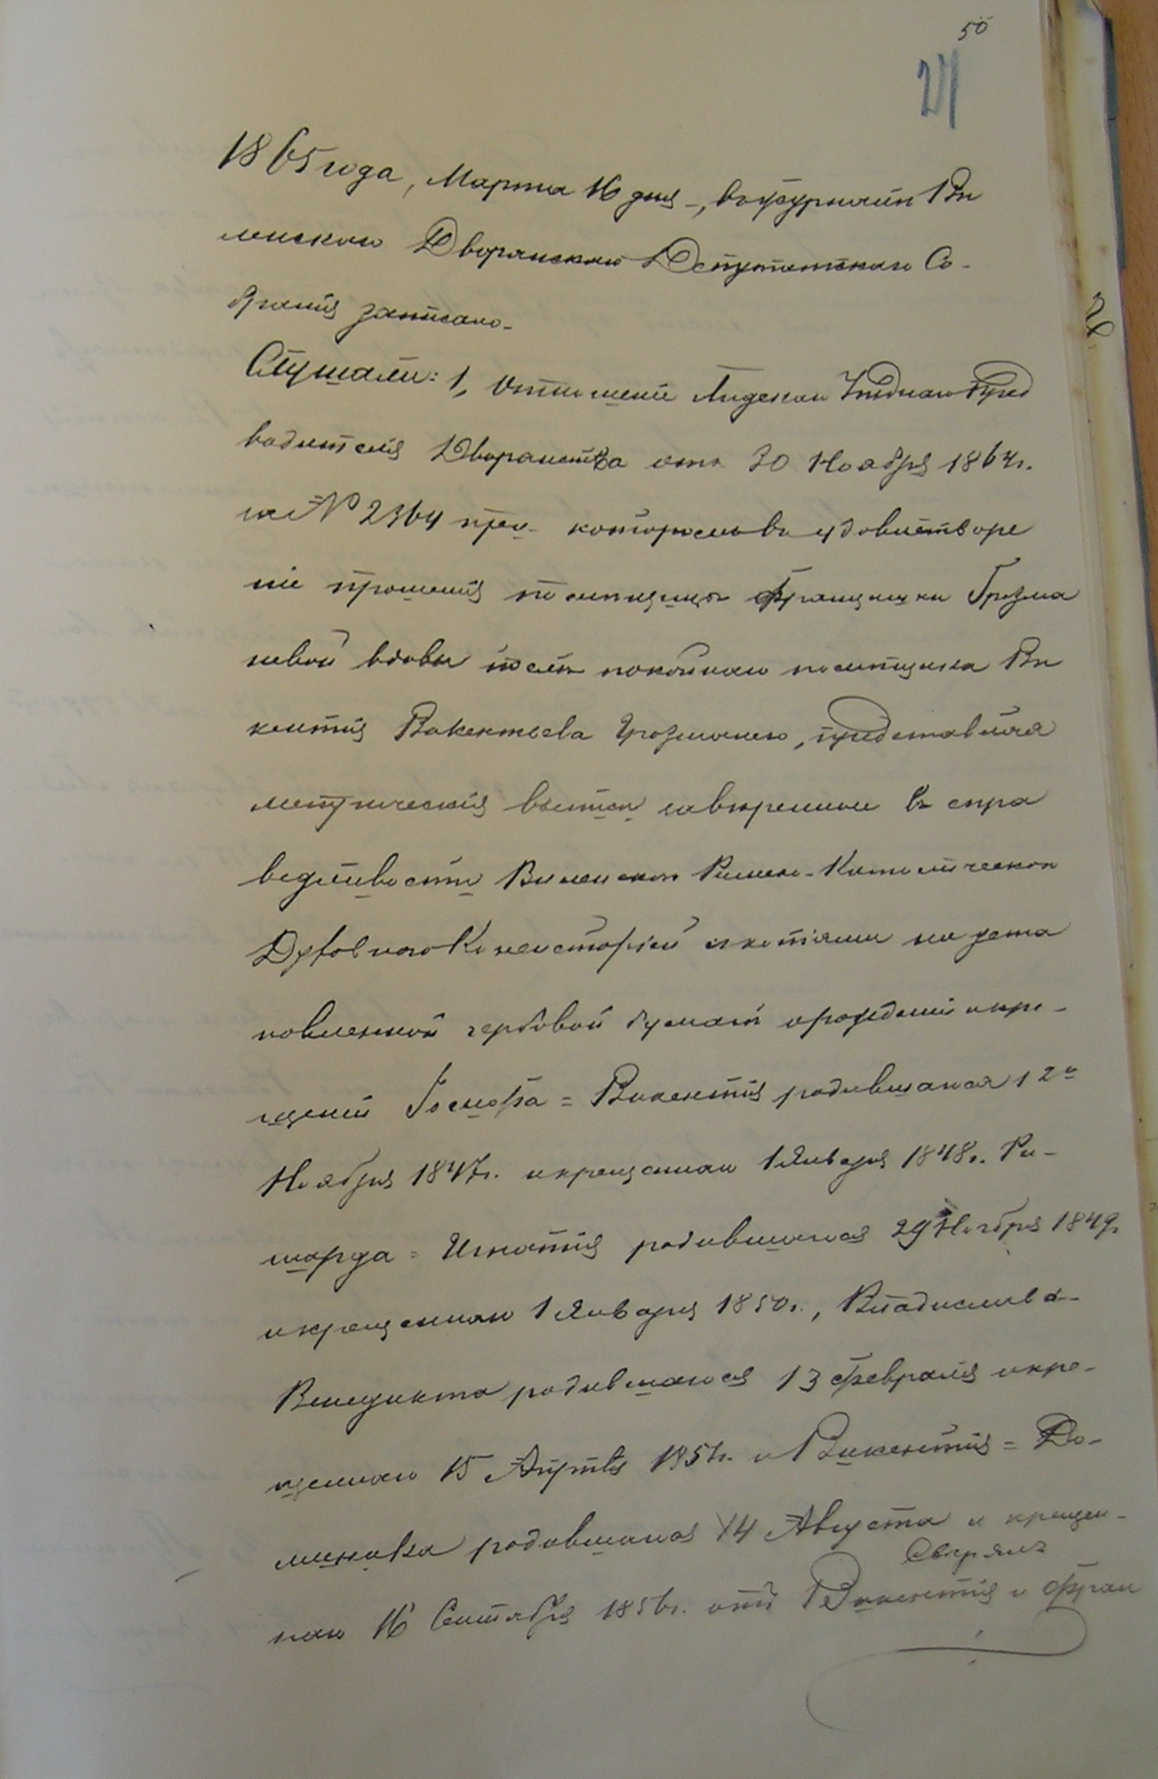 50
27
1865 года, Марта 16 дня, въ журналѣ Ви
ленскаго Дворянскаго Депутатскаго Со-
бранія записано.
Слушали: 1, Отношеніе Лидскаго Уѣзднаго Пред
водителя Дворянства отъ 30 Ноября 1864 г.
за № 2364 при которомъ въ удовлетворе
ніе прошенія помѣщицы Францишки Грозма
невой вдовы послѣ покойнаго помѣщика Ви
кентія Викентьева Грозманею, представляя
метрическія выписи завѣренныя въ спра
ведливости Виленскою Римско-Католическою
Духовною Консисторіей и копіями на уста
новленной гербовой бумагѣ о рожденіи и кре-
щеніи Іосифа = Викентія родившагося 12го
Ноября 1847 г. и крещеннаго 1 Января 1848 г. Ри-
шарда = Игнатія родившагося 29 Ноября 1849 г.
и крещеннаго 1 Января 1850 г., Владислава-
Венедикта родившагося 13 Февраля и кре-
щеннаго 15 Апрѣля 185 г. и Викентія = До-
миника родившагося 14 Августа и крещен-
Свѣрялъ
наго 16 Сентября 1856 г. отъ Викентія и Фран